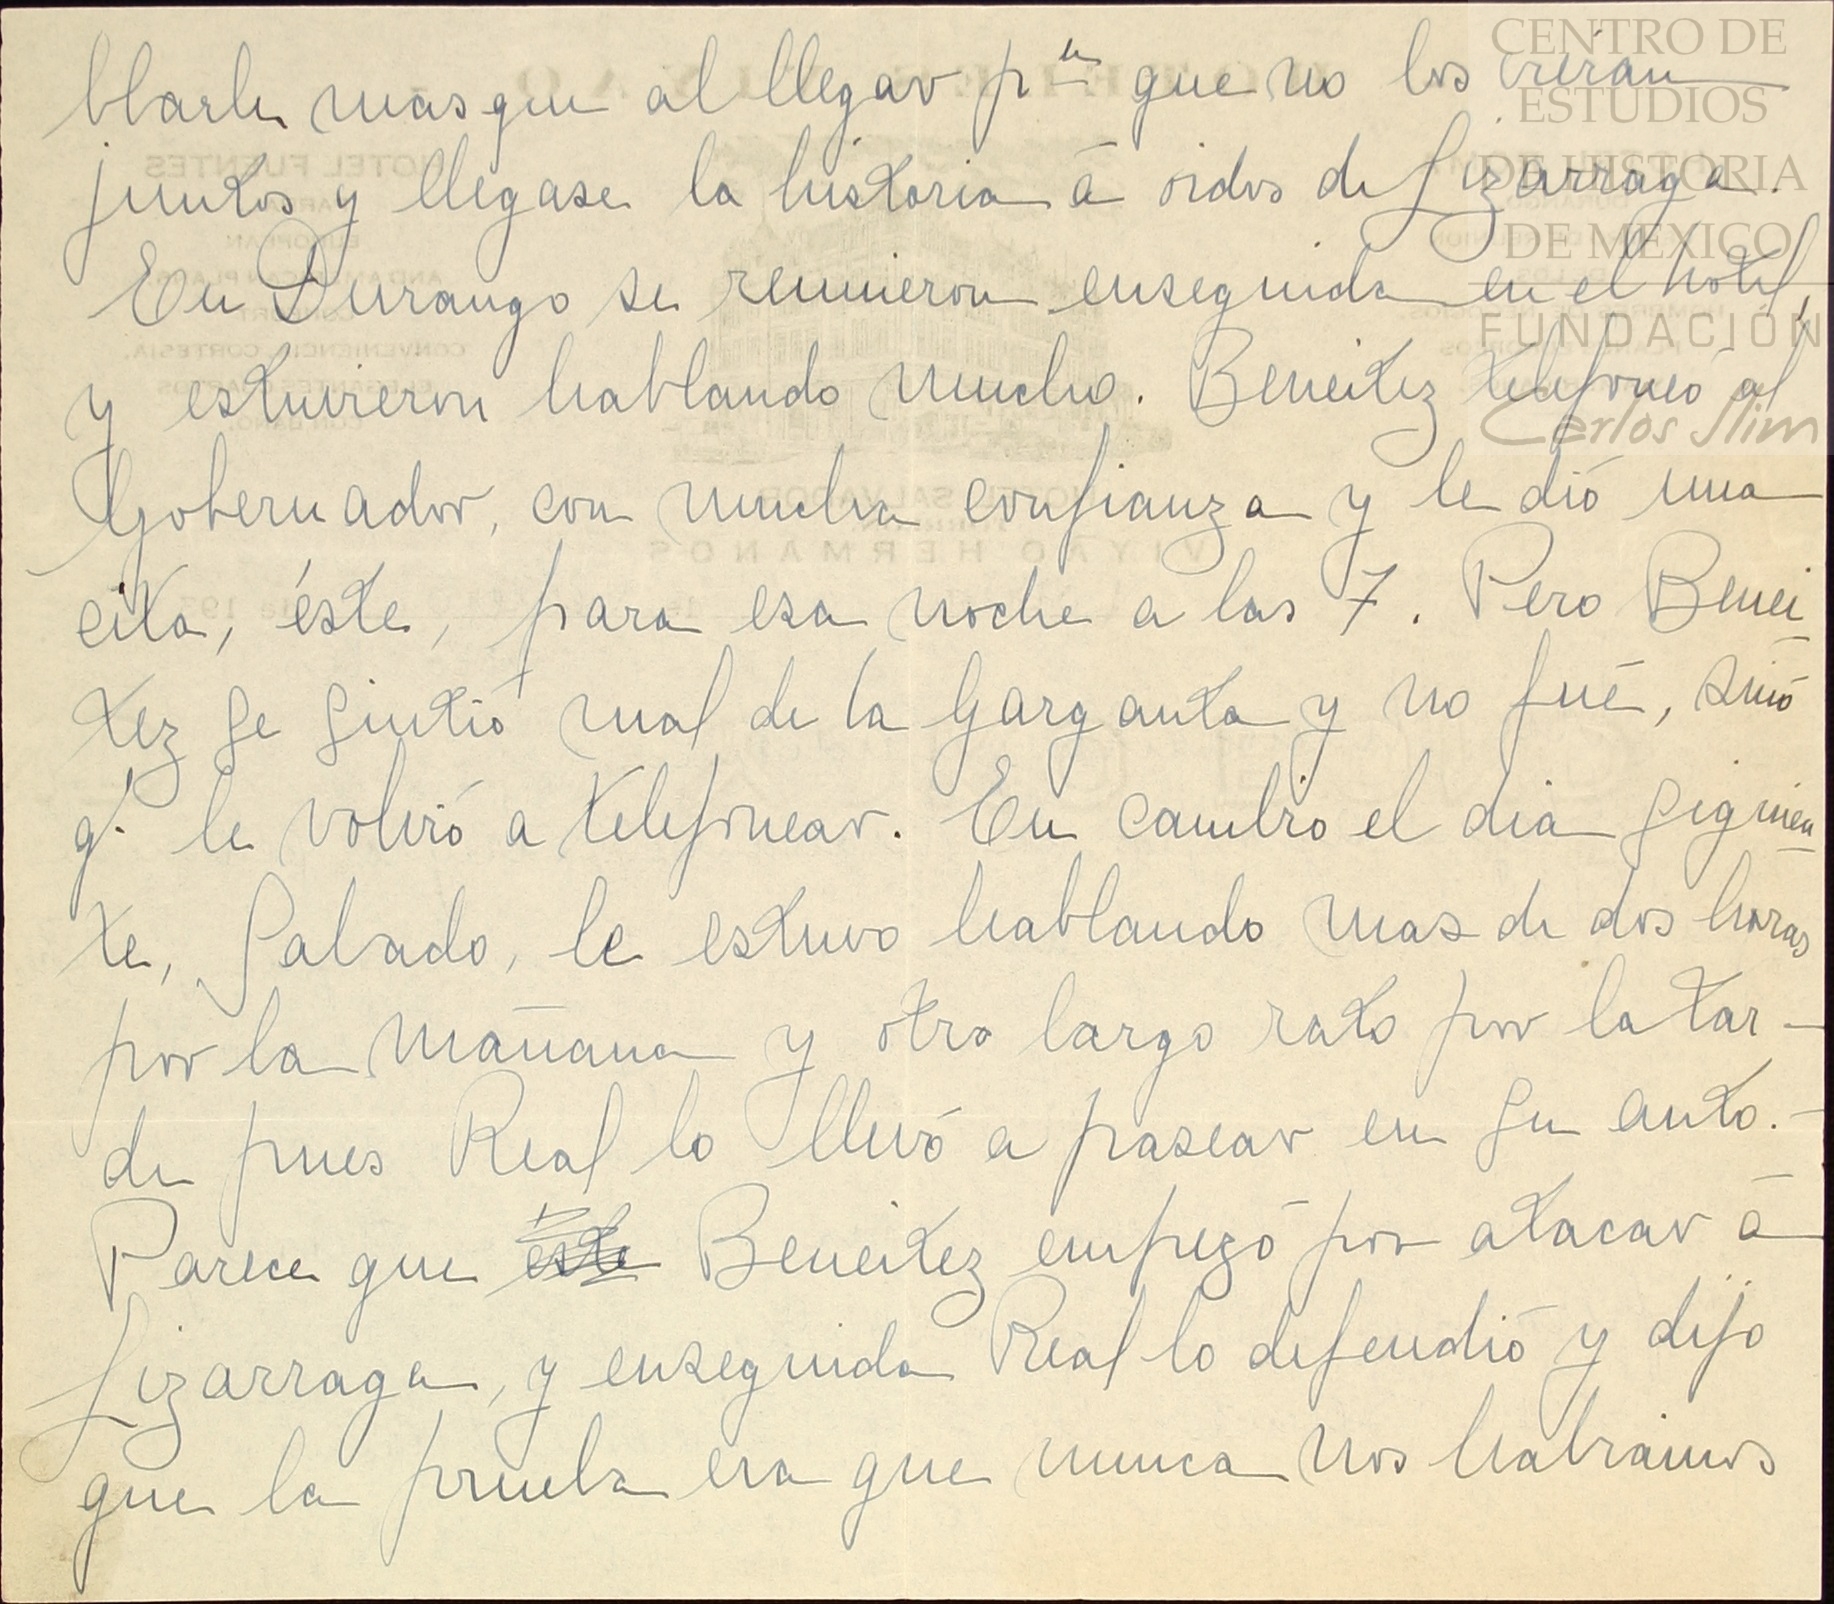 blarle mas que al llegar pa que no los vieran
juntos y llegase la historia á oidos de Lizarraga.
En Durango se reunieron enseguida en el hotel,
y estuvieron hablando mucho. Beneitez telefoneó al
Gobernador, con mucha confianza y le dió una
cita, éste, para esa noche a las 7. Pero Benei
tez se sintió mal de la garganta y no fué, sinó
q. le volvió a telefonear. En cambio el dia siguien
te, Sabado, le estuvo hablando mas de dos horas
por la mañana y otro largo rato por la tar-
de pues Real lo llevó a pasear en su auto.-
Parece que este Beneitez empezó por atacar á
Lizarraga, y enseguida Real lo defendió y dijo
que la prueba era que nunca nos habiamos
CENTRO DE
ESTUDIOS
DE HISTORIA
DE MEXICO
FUNDACIÓN
Carlos Slim
HOTEL FUENTES
EUROPEAN
CONVENIENCIA, CORTESIA,
VIYAO HERMANOS